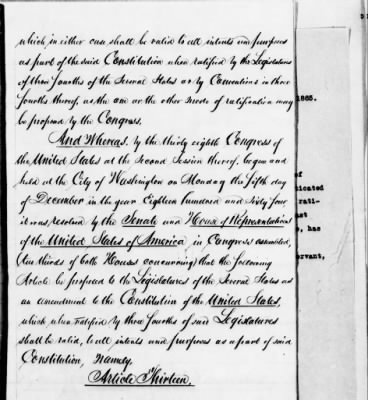 which in either case shall be valid to all intents and purposes
as part of the said Constitution when ratified by the Legislatures
of three fourths of the Several States or by Conventions in three
fourths thereof, as the one or the other mode of ratification may
be proposed by the Congress.
And Whereas, by the thirty eighth Congress of
the United States at the Second Session thereof, begun and
held at the City of Washington on Monday the fifth day
of December in the year Eighteen hundred and Sixty four
it was resolved by the Senate and House of Representatives
of the United States of America, in Congress assembled,
(two thirds of both Houses concurring) that the following
Article be proposed to the Legislatures of the Several States as
an amendment to the Constitution of the United States,
which when ratified by three fourths of said Legislatures
shall be valid, to all intents and purposes as a part of said
Constitution, namely,
Article Thirteen.
1865.
of
nicated
rati-
has
ervant,